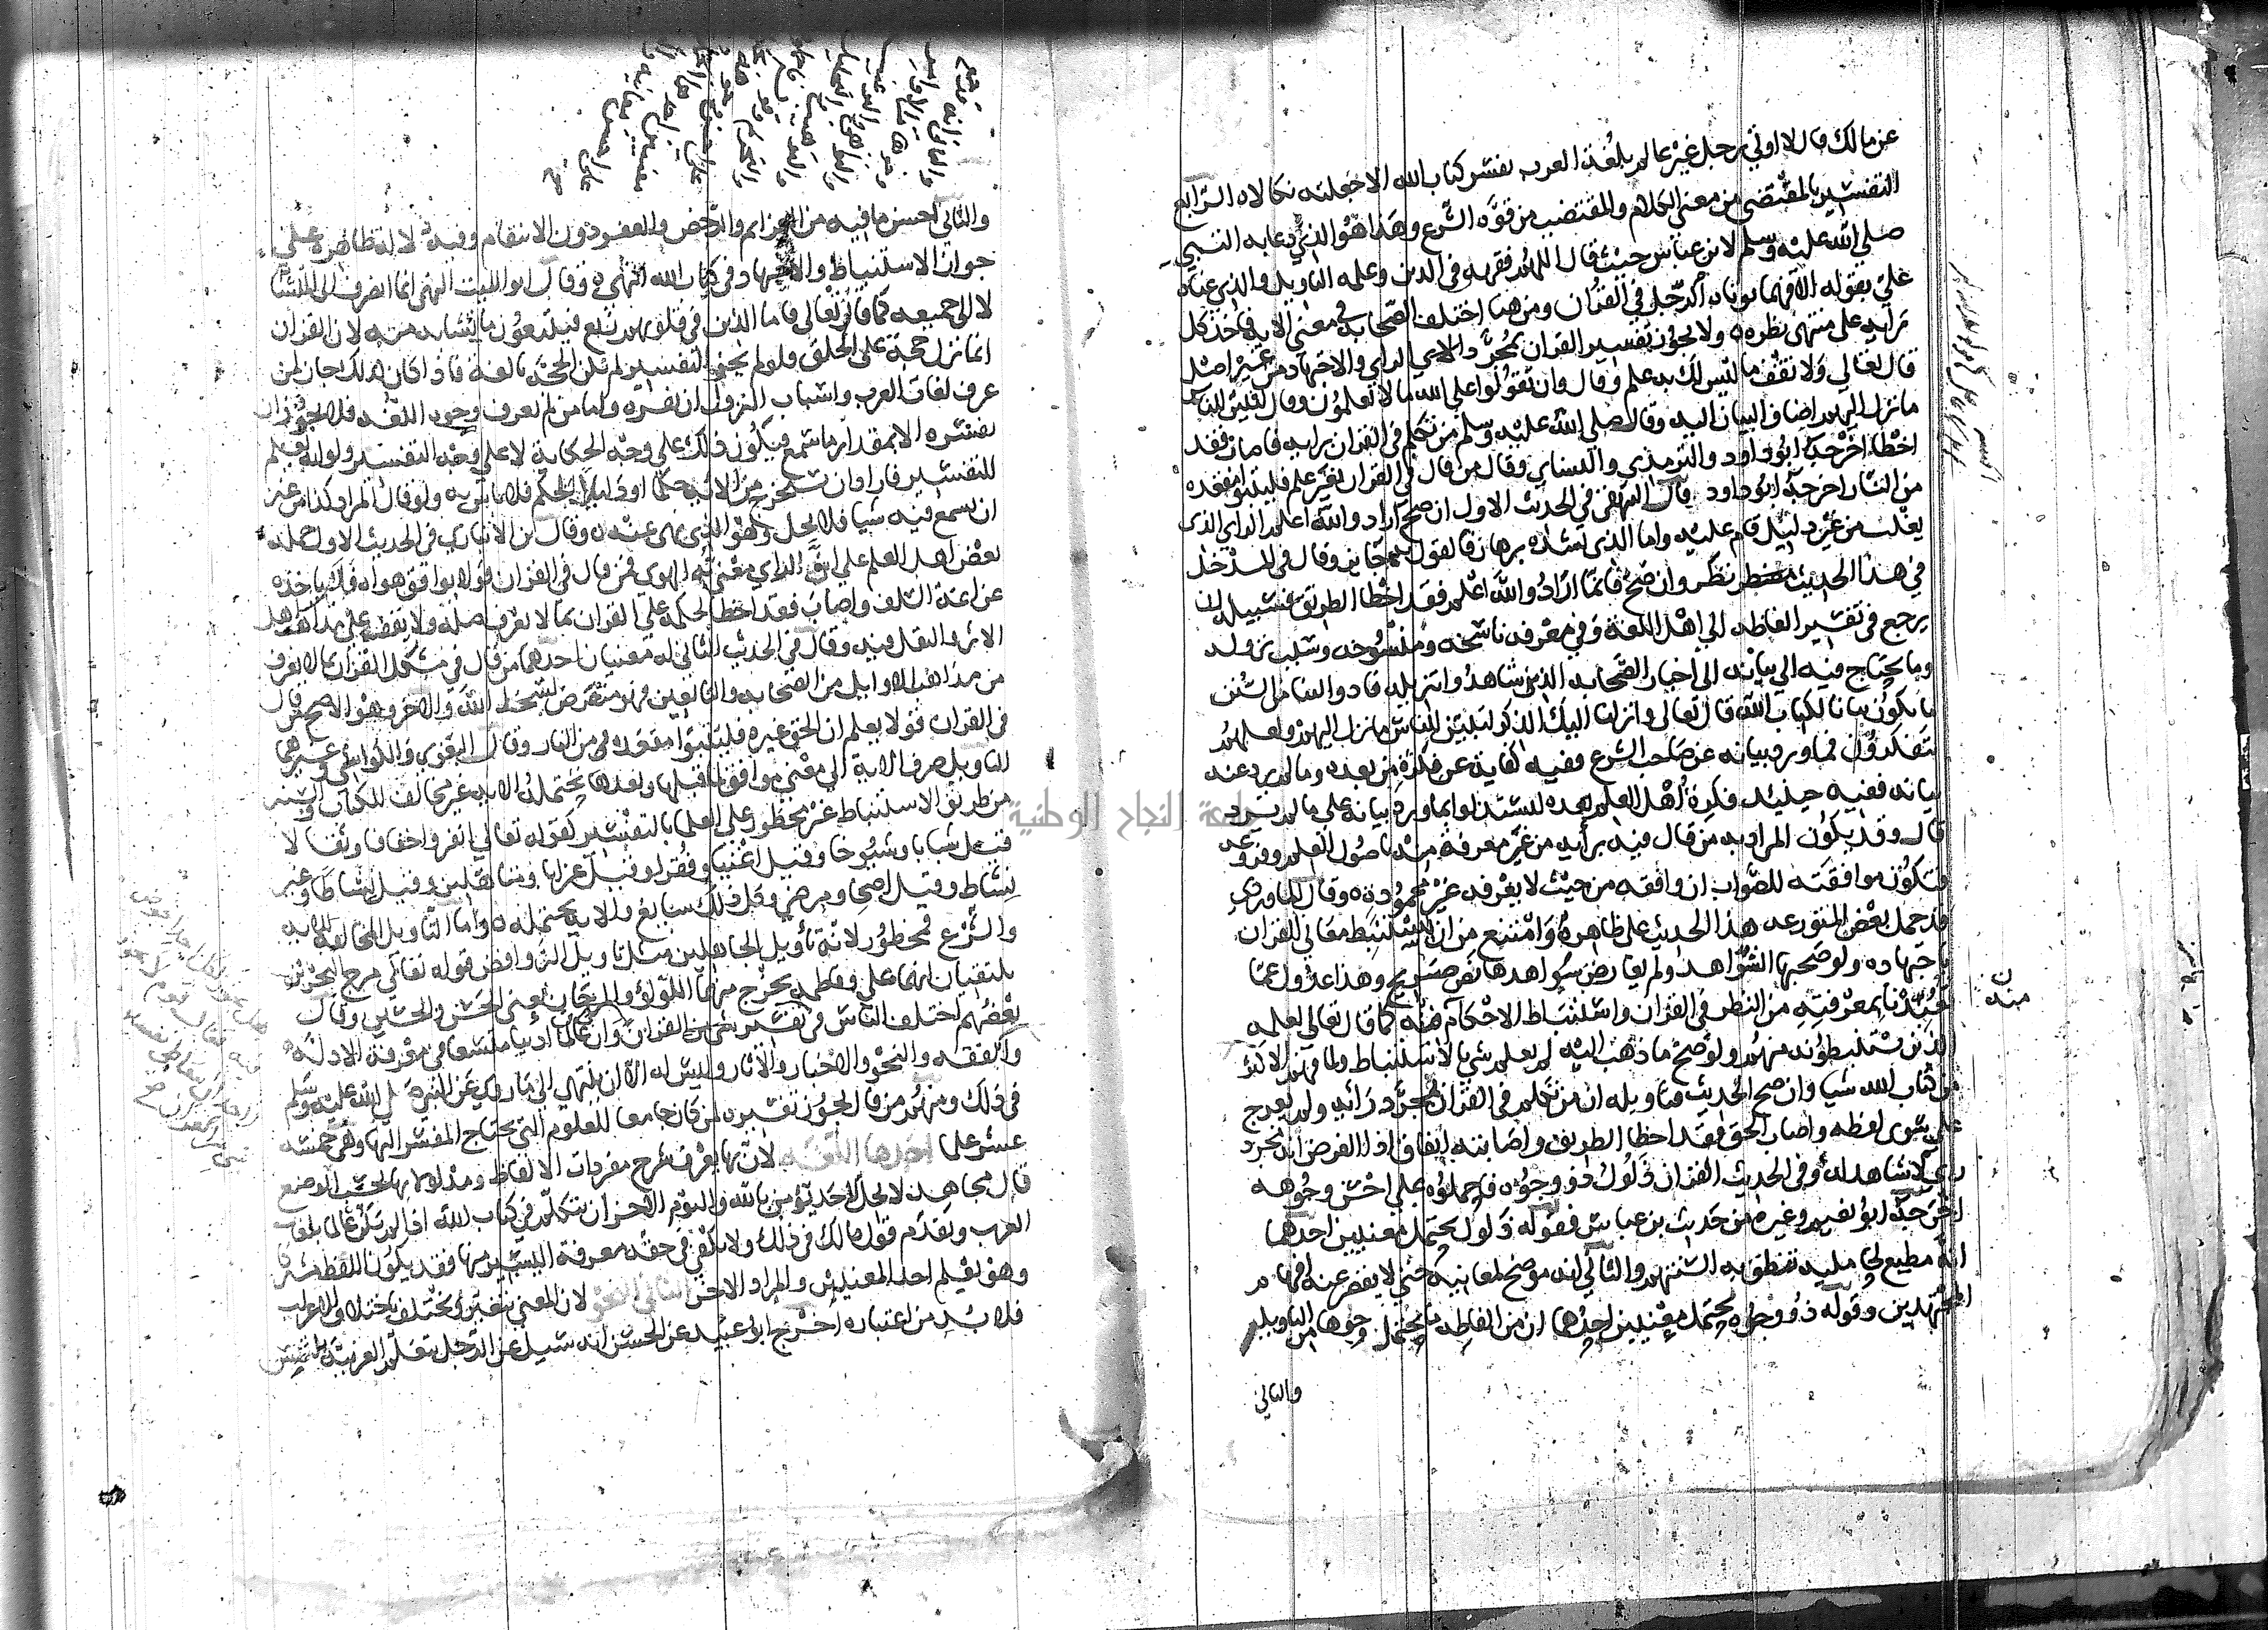 عن مالك قال لا اوتي برجل غير عالم بلغة العرب يفسر كتاب الله الا جعلته نكالا ه الرابع
التفسير بالمقتضي من معني الكلام والمقتضب من قوة الشرع وهذا هو الذي دعا به النبي
صلي الله عليه وسلم لابن عباس حيث قال اللهم فقهه في الدين وعلمه التاويل والذي عناه
علي بقوله الا فهما يوتاه الرجل في القران ومن هنا اختلف الصحابة في معني الاية فاخذ كل
برايه علي منتهي نظره ه ولا يجوز تفسير القران بمجرد الراي والاجتهاد من غير اصل
قال تعالي ولا تقف ما ليس لك به علم وقال وان تقولوا علي الله ما لا تعلمون وقال لتبين للناس
ما نزل اليهم اضاف البيان اليه وقال صلي الله عليه وسلم من تكلم في القران برايه فاصاب فقد
اخطا اخرجه ابو داود والترمذي والنساي وقال من قال في القران بغير علم فليتبوا مقعده
من النار اخرجه ابو داود قال البيهقي في الحديث الاول ان صح اراد والله اعلم الراي الذي
يغلب من غير دليل قام عليه واما الذي يشده برهان فالقول به جايز وقال في المدخل
في هذا الحديث نظر وان صح فانما اراد والله اعلم فقد اخطا الطريق فسبيله ان
يرجع في تفسير الفاظه الي اهل اللغة وفي معرفة ناسخه ومنسوخه وسبب نزوله
وما يحتاج فيه الي بيانه الي اخبار الصحابة الذين شاهدوا تنزيله فادوا الينا من السنن
ما يكون بيانا لكتاب الله قال تعالي وانزلنا اليك الذكر لتبين للناس ما نزل اليهم ولعلهم
يتفكرون فما ورد بيانه عن صاحب الشرع ففيه كفاية عن فكرة من بعده وما لم يرد عنه
بيانه ففيه حينئذ فكرة اهل العلم بعده ليستدلوا بما ورد بيانه علي ما لم يرد
قال وقد يكون المراد به من قال فيه برايه من غير معرفة منه باصول العلم وفروعه
فتكون موافقته للصواب ان وافقه من حيث لا يعرفه غير محمودة ه وقال الماوردي
قد حمل بعض المتورعه هذا الحديث علي ظاهره وامتنع من ان يستنبط معاني القران
باجتهاده ولو صحبها الشواهد ولم يعارض شواهدها نص صريح وهذا عدول عما
تعبدنا بمعرفته من النظر في القران واستنباط الاحكام منه كما قال تعالي لعلمه
الذين يستنبطونه منهم ولو صح ما ذهب اليه لم يعلم شي بالاستنباط ولما فهم الاكثر
من كتاب الله شيا وان صح الحديث فتاويله ان من تكلم في القران بمجرد رايه ولم يعرج
علي سوي لفظه واصاب الحق فقد اخطا الطريق واصابته اتفاق اذ الغرض انه مجرد
راي لا شاهد له وفي الحديث القران ذلول ذو وجوه فاحملوه علي احسن وجوهه
اخرجه ابو نعيم وغيره من حديث بن عباس فقوله ذلول يحتمل معنيين احدهما
انه مطيع لحامليه تنطق به السنتهم والثاني انه موضح لمعانيه حتي لا يقصر عنه افهام
المجتهدين وقوله ذو وجوه يحتمل معنيين احدهما ان من الفاظه ما يحتمل وجوها من التاويل
والثاني
منه
والثاني احسن ما فيه من العزايم والرخص والعفو دون الانتقام وفيه دلالة ظاهرة علي
جواز الاستنباط والاجتهاد في كتاب الله انتهي ه وقال ابو الليث النهي انما انصرف الي المتشابه
لا الي جميعه كما قال تعالي فاما الذين في قلوبهم زيغ فيتبعون ما تشابه منه لان القران
انما نزل حجة علي الخلق فلو لم يجز التفسير لم تكن الحجة بالغة فاذا كان كذلك جاز لمن
عرف لغات العرب واسباب النزول ان يفسره واما من لم يعرف وجوه اللغة فلا يجوز ان
يفسره الا بمقدار ما سمع فيكون ذلك علي وجه الحكاية لا علي وجه التفسير ولو انه يعلم
التفسير فاراد ان يستخرج من الاية حكما او دليل الحكم فلا باس به ولو قال المراد كذا من غير
ان يسمع فيه شيا فلا يحل وهو الذي نهي عنه ه وقال ابن الانباري في الحديث الاول حمله
بعض اهل العلم علي ان الراي معني به الهوي فمن قال في القران قولا يوافق هواه فلم ياخذه
عن ايمة السلف واصاب فقد اخطا لحكمه علي القران بما لا يعرف اصله ولا يقف علي مذاهب اهل
الاثر والنقل فيه وقال في الحديث الثاني له معنيان احدهما من قال في مشكل القران بما لا يعرف
من مذاهب الاوايل من الصحابة والتابعين فهو متعرض لسخط الله والاخر وهو الاصح من قال
في القران قولا يعلم ان الحق غيره فليتبوا مقعده من النار وقال البغوي والكواشي وغيرهما
التاويل صرف الاية الي معني موافق لما قبلها وبعدها تحتمله الاية غير مخالف للكتاب والسنة
من طريق الاستنباط غير محظور علي العلما بالتفسير كقوله تعالي انفروا خفافا وثقالا
قيل شبابا وشيوخا وقيل اغنيا وفقرا وقيل عزابا ومتاهلين وقيل نشاطا وغير
نشاط وقيل اصحا ومرضي وكل ذلك سايغ والاية تحتمله ه واما التاويل المخالف للاية
والشرع فمحظور لانه تاويل الجاهلين مثل تاويل الروافض قوله تعالي مرج البحرين
يلتقيان انهما علي وفاطمة يخرج منهما اللولو والمرجان يعني الحسن والحسين وقال
بعضهم اختلف الناس في تفسير القران وان كان عالما اديبا متسعا في معرفة الادلة
والفقه والنحو والاخبار والاثار وليس له الا ان ينتهي الي ما روي عن النبي صلي الله عليه وسلم
في ذلك ومنهم من قال يجوز تفسيره لمن كان جامعا للعلوم التي يحتاج المفسر اليها وهي خمسة
عشر علما احدها اللغة لان بها يعرف شرح مفردات الالفاظ ومدلولاتها بحسب الوضع
قال مجاهد لا يحل لاحد يؤمن بالله واليوم الاخر ان يتكلم في كتاب الله اذا لم يكن عالما بلغات
العرب وتقدم قول مالك في ذلك ولا يكفي في حقه معرفة اليسير منها فقد يكون اللفظ مشتركا
وهو يعلم احد المعنيين والمراد الاخر الثاني النحو لان المعني يتغير ويختلف باختلاف الاعراب
فلا بد من اعتباره اخرج ابو عبيد عن الحسن انه سيل عن الرجل يتعلم العربية يلتمس
جامعة النجاح الوطنية